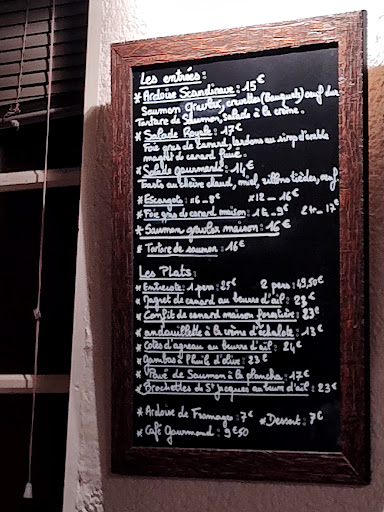 Les entrées :
* Ardoise Scandinave : 15€
Saumon Gravlax, crevettes (Bouquets) oeuf dur
Tartare de Saumon, Salade à la crème.
* Salade Royale : 17€
Foie gras de canard, lardons au sirop d'érable
magret de canard fumé.
* Salade gourmande : 14€
Toasts au chèvre chaud, miel, tièdes, oeuf
* Escargots : x6 - 8€ x12 - 16€
* Foie gras de canard maison : 1t - 9€ 2t - 17€
* Saumon gravlax maison : 16€
* Tartare de saumon : 16€
Les Plats :
* Entrecote : 1 pers : 25€ 2 pers : 49,50€
* Magret de canard au beurre d'ail : 23€
* Confit de canard maison forestière : 23€
* andouillette à la crème d'échalote : 18€
* Cotes d'agneau au beurre d'ail : 24€
* Gambas à l'huile d'olive : 23€
* Pavé de Saumon à la plancha : 17€
* Brochettes de St jacques au beurre d'ail : 23€
* Ardoise de Fromages : 7€ * Dessert : 7€
* Café Gourmand : 9€50